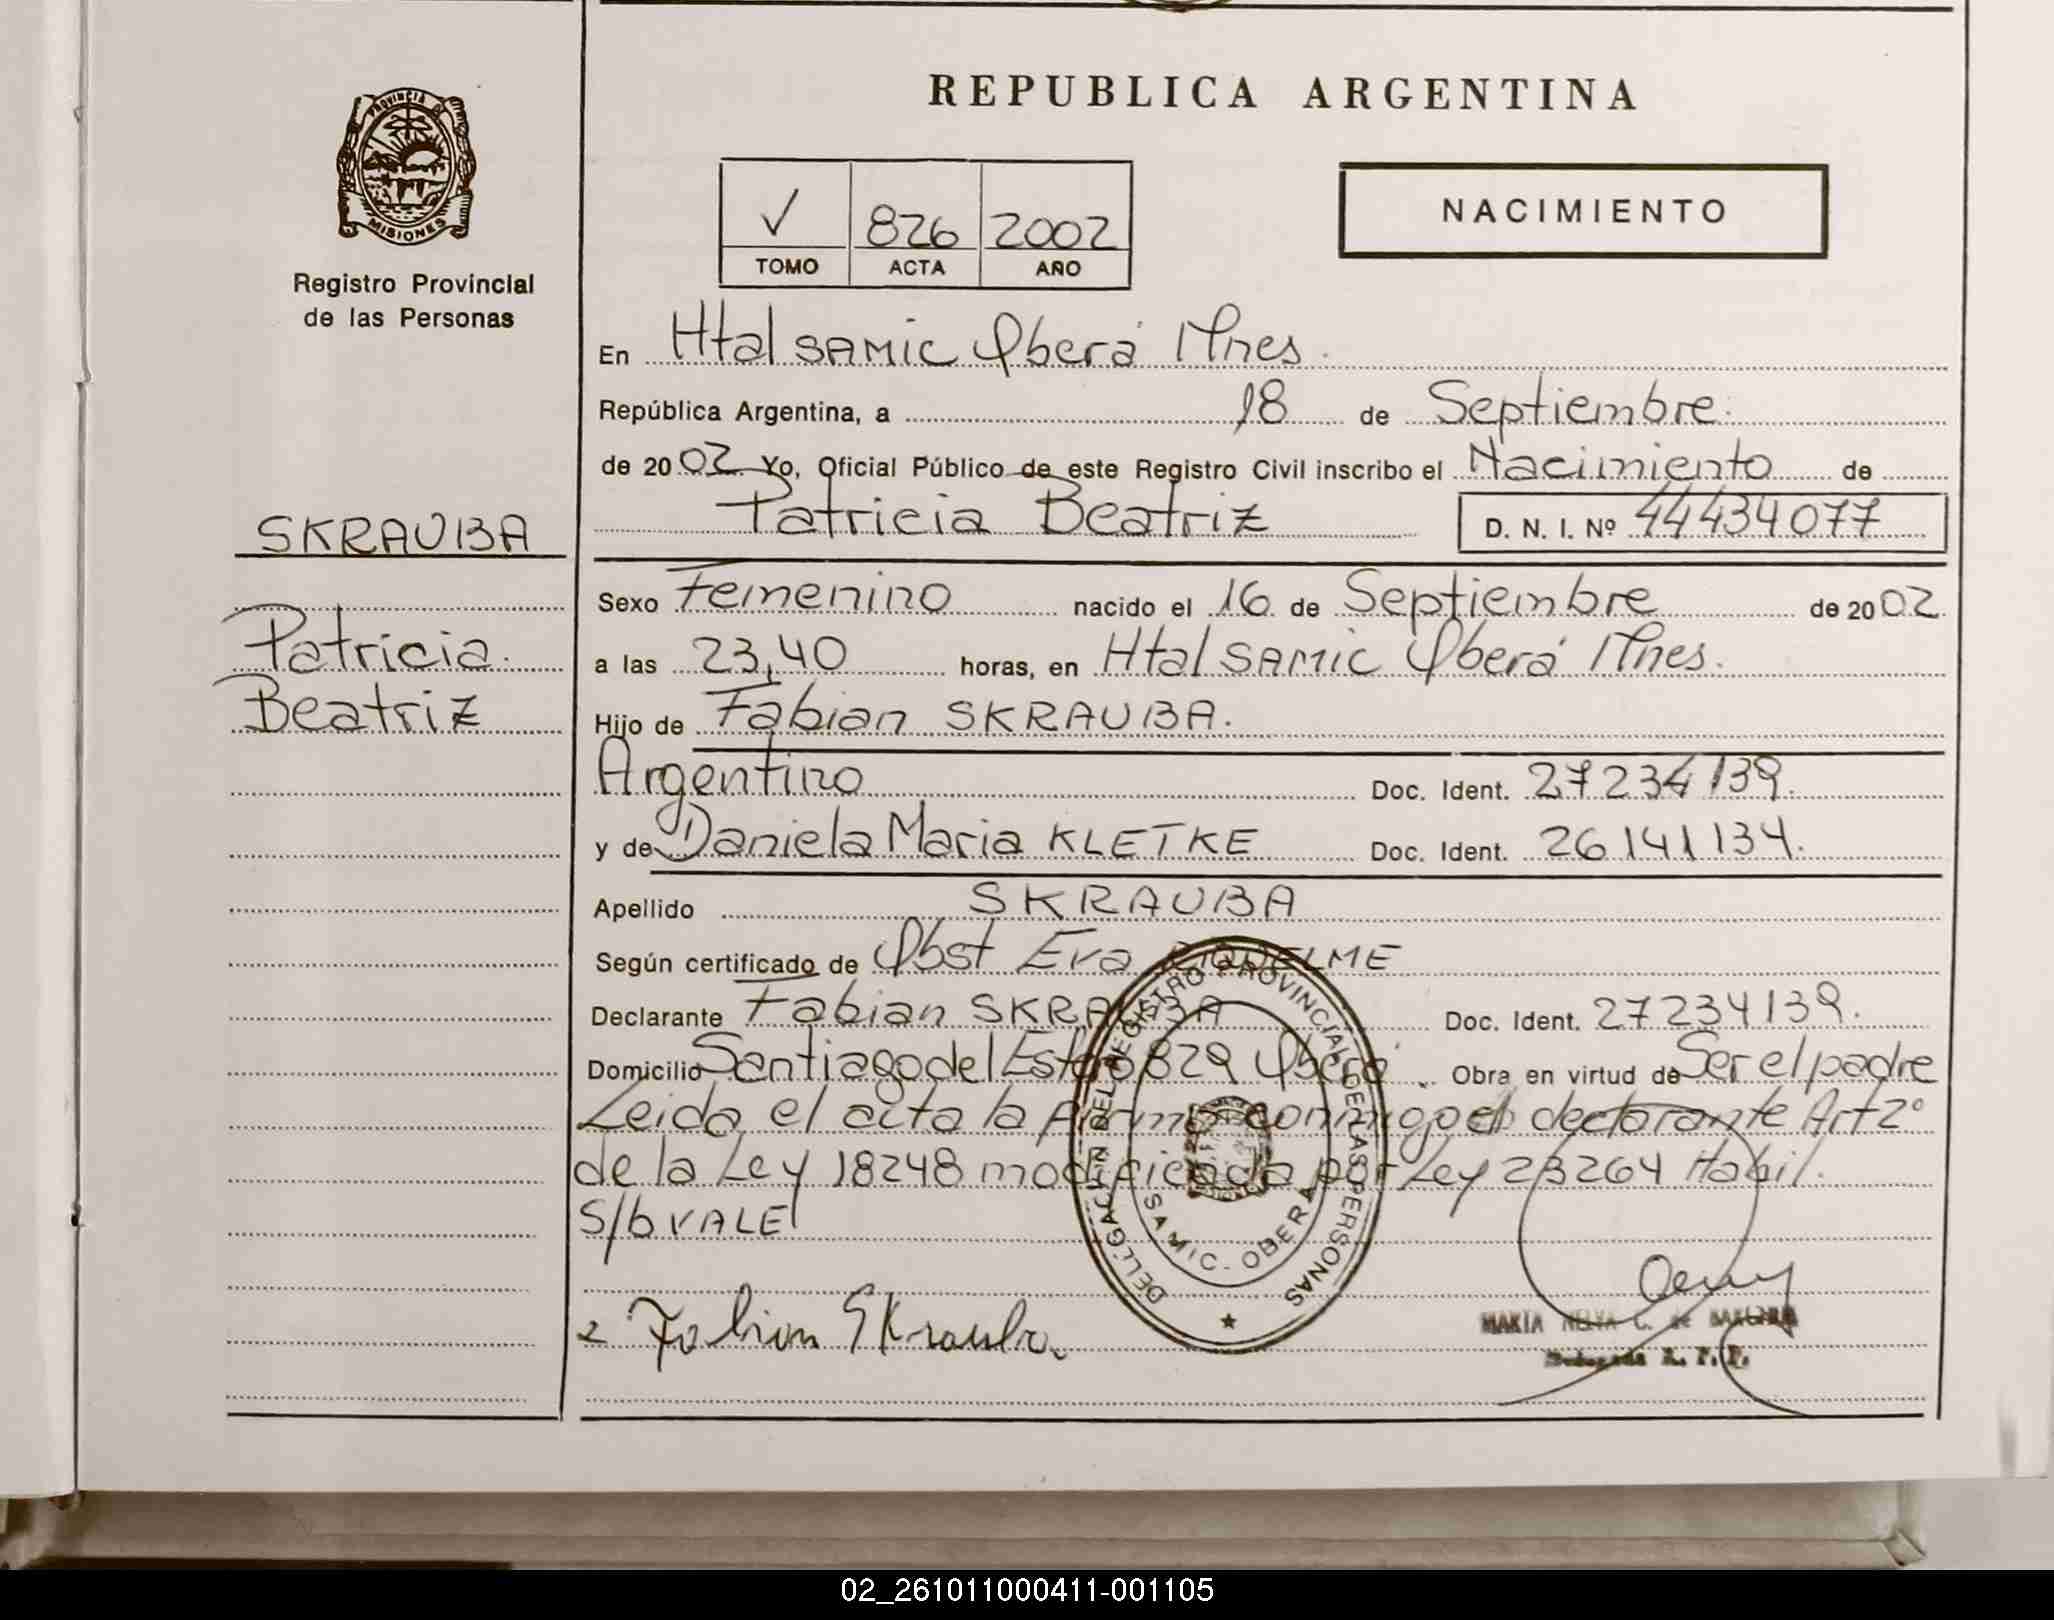 REPUBLICA ARGENTINA
PROVINCIA DE
MISIONES
Registro Provincial
de las Personas
V 826 2002
TOMO ACTA AÑO
NACIMIENTO
En Htal SAMIC Oberá Mnes.
República Argentina, a 18 de Septiembre.
de 2002 Yo, Oficial Público de este Registro Civil inscribo el Nacimiento de
Patricia Beatriz D. N. I. Nº 44434077
SKRAUBA
Patricia
Beatriz
Sexo Femenino nacido el 16 de Septiembre de 2002
a las 23,40 horas, en Htal SAMIC Oberá Mnes.
Hijo de Fabian SKRAUBA.
Argentino Doc. Ident. 27234139.
y de Daniela Maria KLETKE Doc. Ident. 26141134.
Apellido SKRAUBA
Según certificado de Obst Eva RIQUELME
Declarante Fabian SKRAUBA Doc. Ident. 27234139.
Domicilio Santiago del Estero 829 Oberá. Obra en virtud de Ser el padre
Leida el acta la firma conmigo el declarante Art 2°
de la Ley 18248 modificada por Ley 23264 Habil.
S/b VALE
Fabian SKrauba.
DELEGACION DEL REGISTRO PROVINCIAL DE LAS PERSONAS
SAMIC - OBERA
MARIA NELVA C. de
Delegada R. P. P.
02_261011000411-001105